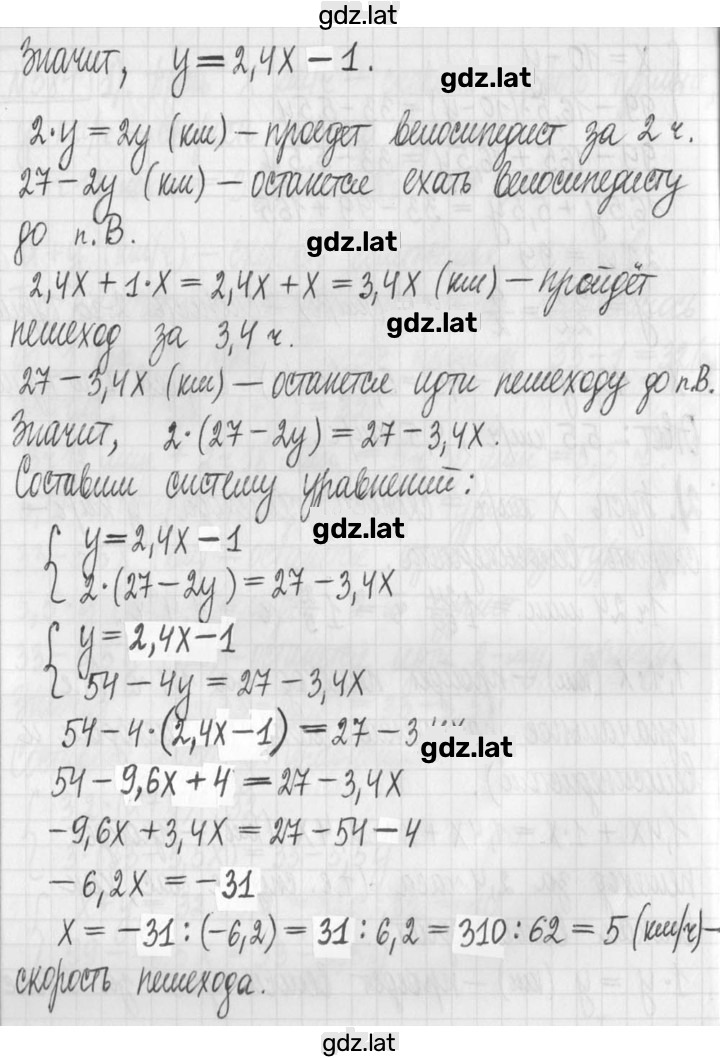 gdz.lat
Значит, y = 2,4x − 1.
gdz.lat
2·y = 2y (км) — проедет велосипедист за 2 ч.
27 − 2y (км) — останется ехать велосипедисту
до п. В.
gdz.lat
2,4x + 1·x = 2,4x + x = 3,4x (км) — пройдёт
пешеход за 3,4 ч.
gdz.lat
27 − 3,4x (км) — останется идти пешеходу до п. В.
Значит, 2·(27 − 2y) = 27 − 3,4x.
Составим систему уравнений:
gdz.lat
{ y = 2,4x − 1
2·(27 − 2y) = 27 − 3,4x
{ y = 2,4x − 1
54 − 4y = 27 − 3,4x
54 − 4·(2,4x − 1) = 27 − 3
gdz.lat
54 − 9,6x + 4 = 27 − 3,4x
−9,6x + 3,4x = 27 − 54 − 4
−6,2x = −31
x = −31 : (−6,2) = 31 : 6,2 = 310 : 62 = 5 (км/ч) —
скорость пешехода.
gdz.lat